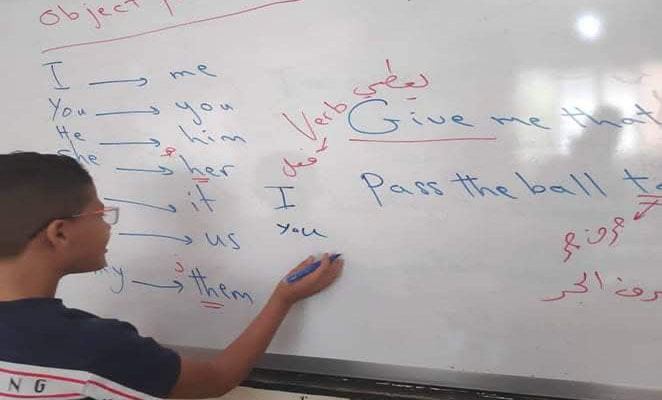 Object
I → me
You → you
He → him
She → her
→ it
→ us
y → them
يعطي
Verb
فعل
Give me that
I
Pass the ball to
You
حرف جر
حرف الجر
N G